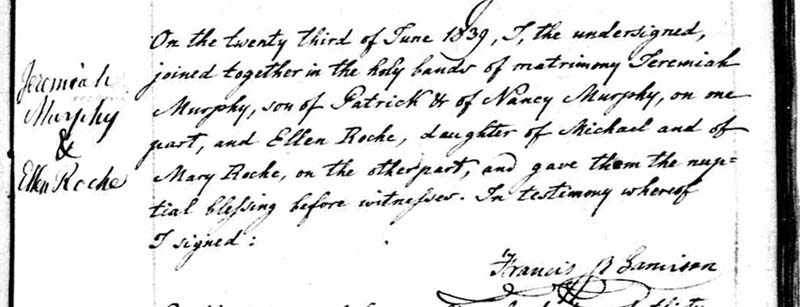 Jeremiah
Murphy
&
Ellen Roche
On the twenty third of June 1839, I, the undersigned,
joined together in the holy bands of matrimony Jeremiah
Murphy, son of Patrick & of Nancy Murphy, on one
part, and Ellen Roche, daughter of Michael and of
Mary Roche, on the other part, and gave them the nup=
tial blessing before witnesses. In testimony whereof
I signed:
Francis B Jamison